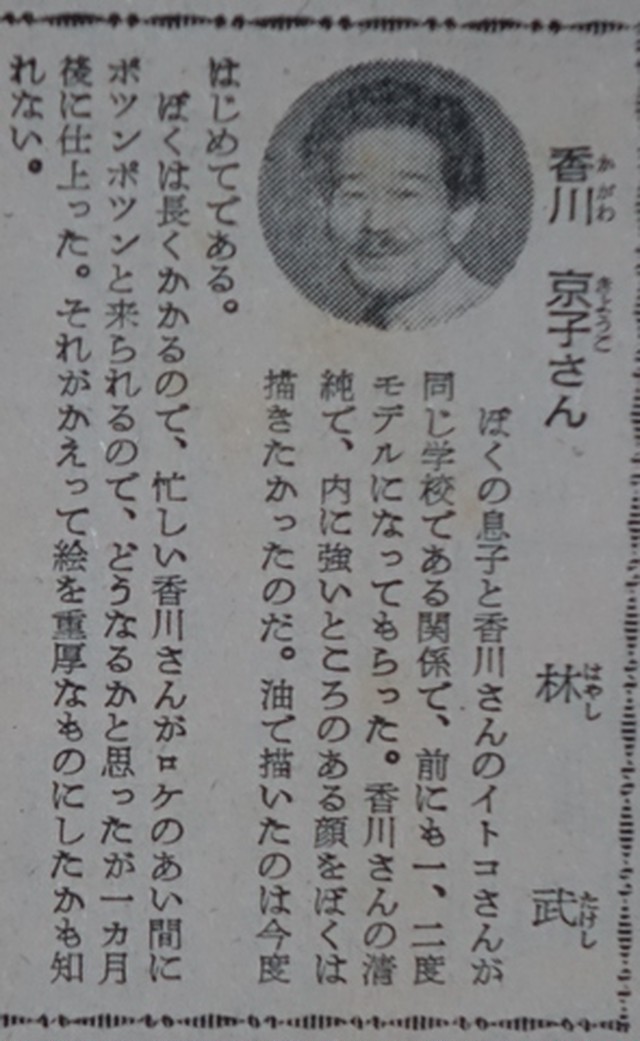 香川 京子さん
かがわ きょうこ
林 武
はやし たけし
ぼくの息子と香川さんのイトコさんが
同じ学校である関係で、前にも一、二度
モデルになってもらった。香川さんの清
純で、内に強いところのある顔をぼくは
描きたかったのだ。油で描いたのは今度
はじめてである。
ぼくは長くかかるので、忙しい香川さんがロケのあい間に
ポツンポツンと来られるので、どうなるかと思ったが一カ月
後に仕上った。それがかえって絵を重厚なものにしたかも知
れない。